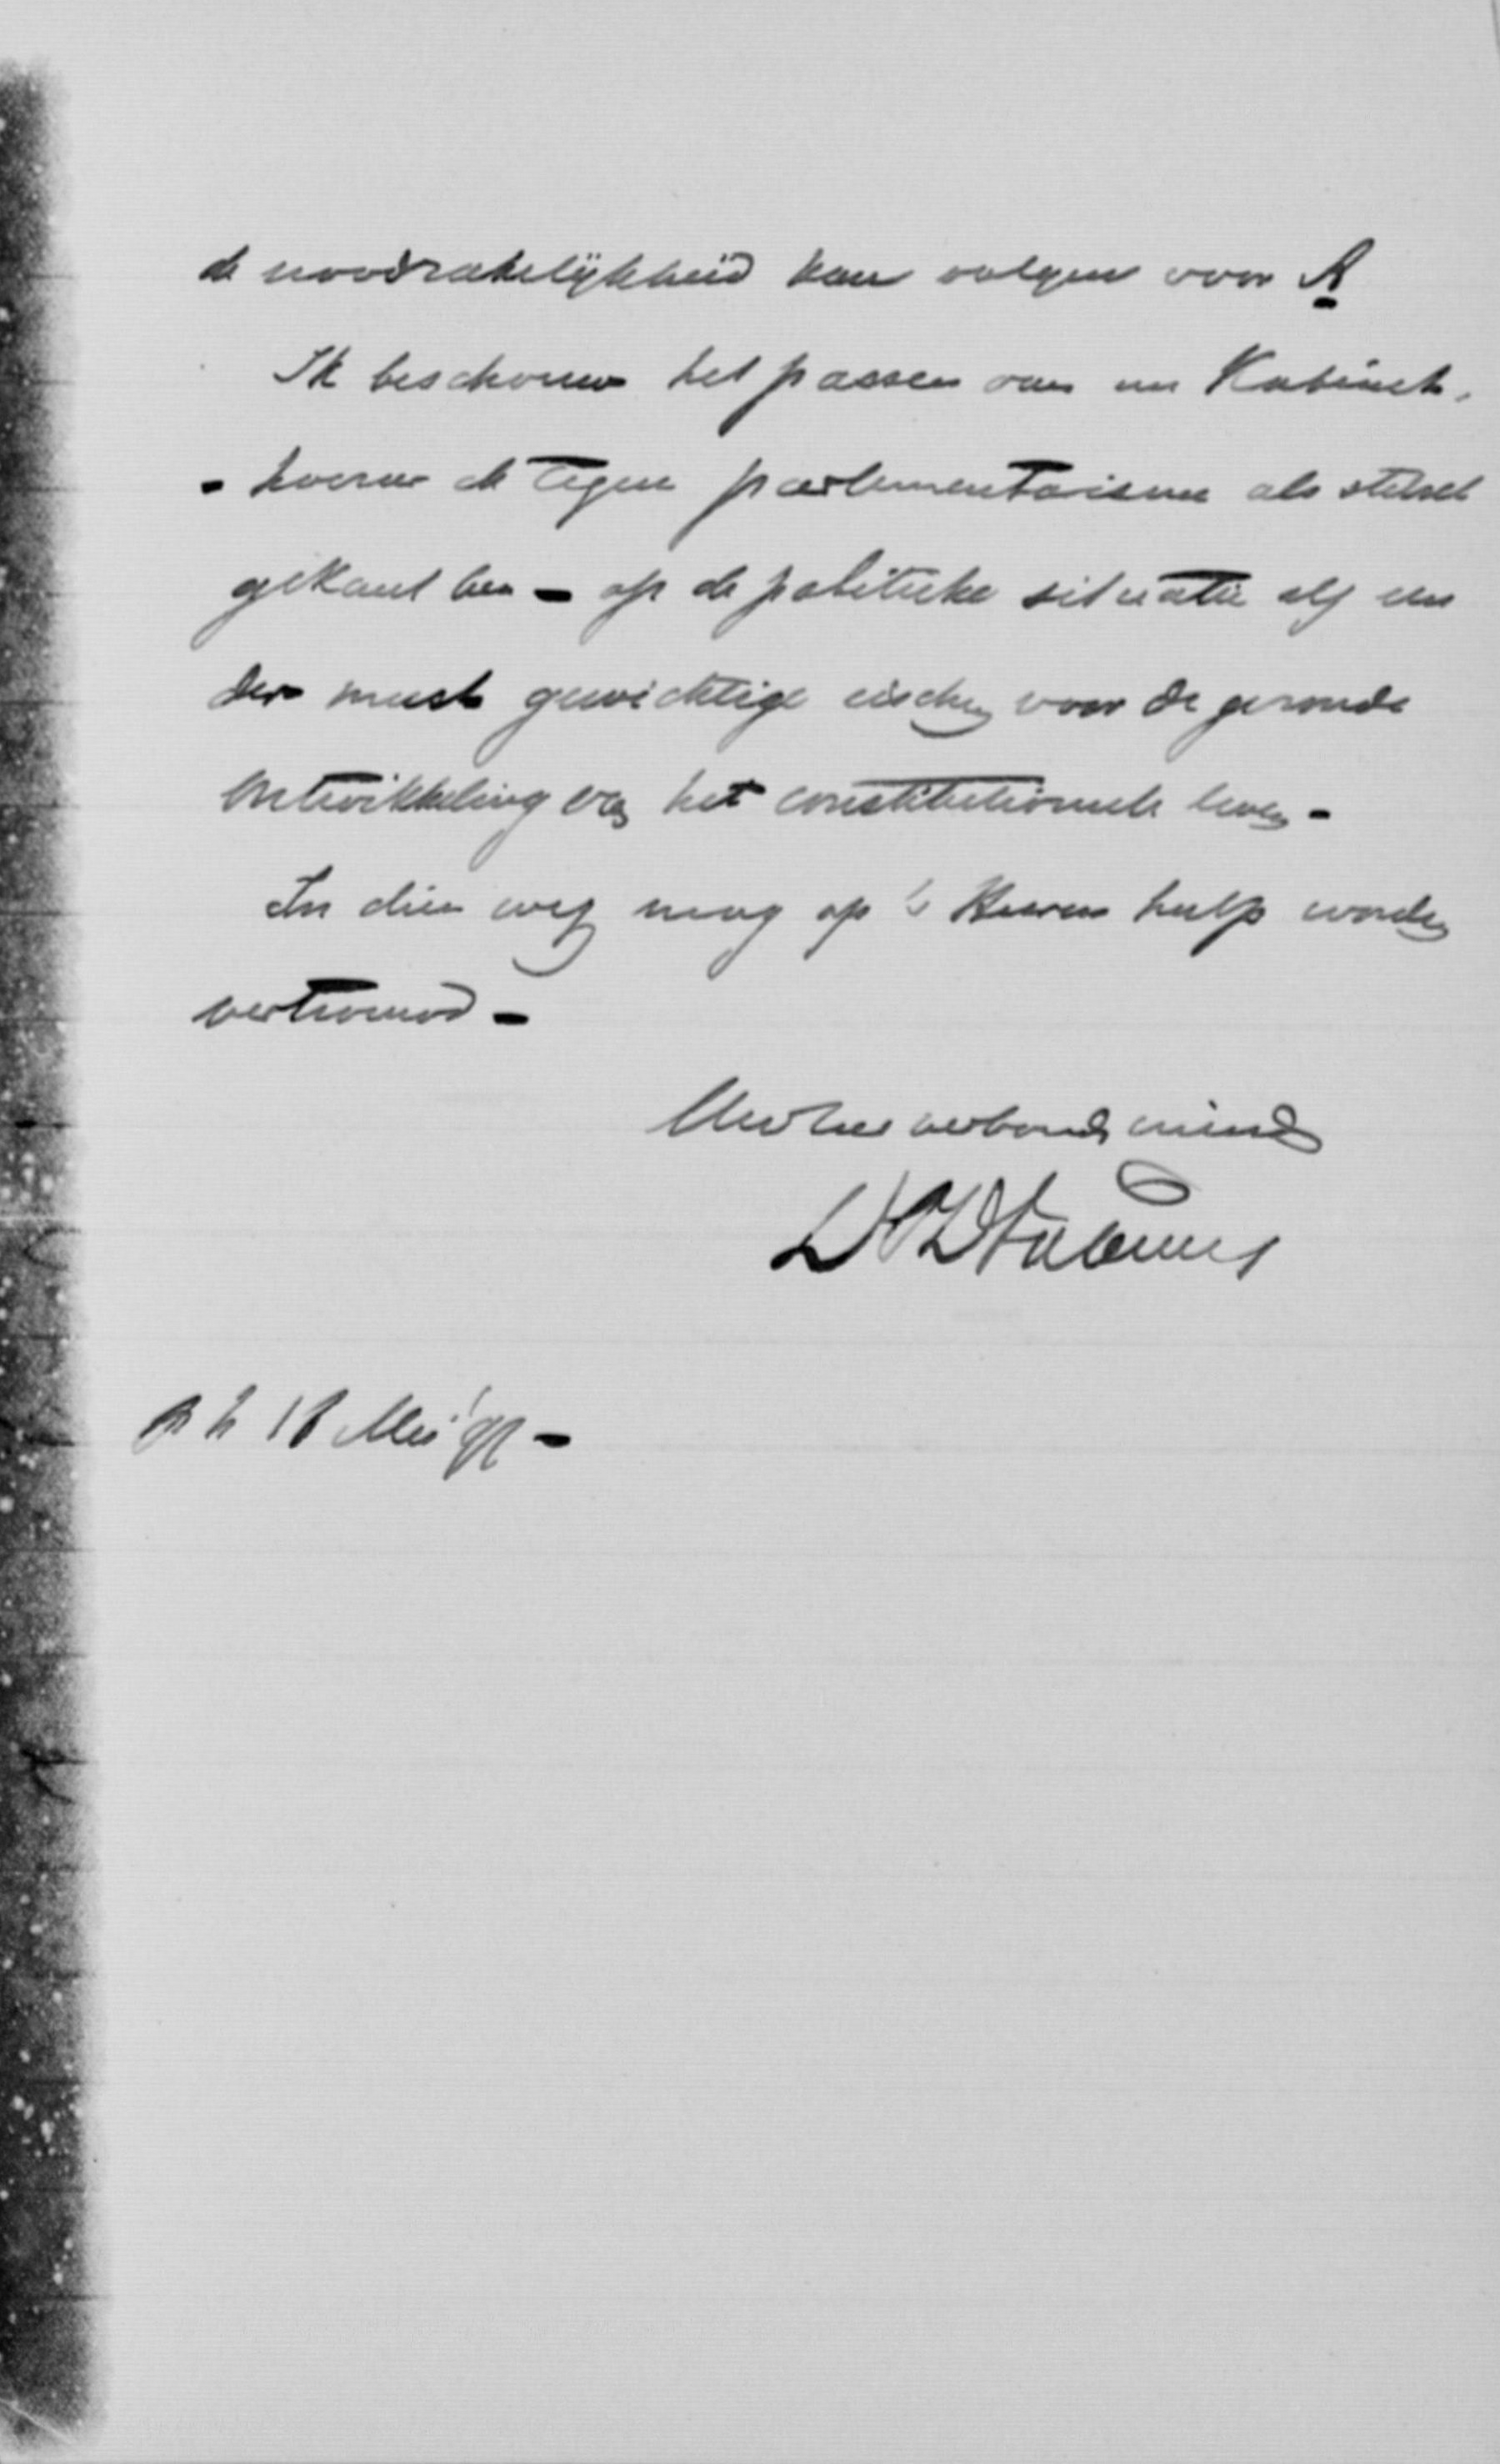 de noodzakelijkheid kan volgen voor A
Ik beschouw het passen van een Kabinet,
- hoezeer ik tegen parlementarisme als stelsel
gekant ben - op de politieke situatie als een
der meest gewichtige eischen voor de gezonde
ontwikkeling van het constitutioneele leven -
In dien weg mog op 's Heeren hulp worden
vertrouwd -
Uw zeer verbonden vriend
18 Mei '97 -